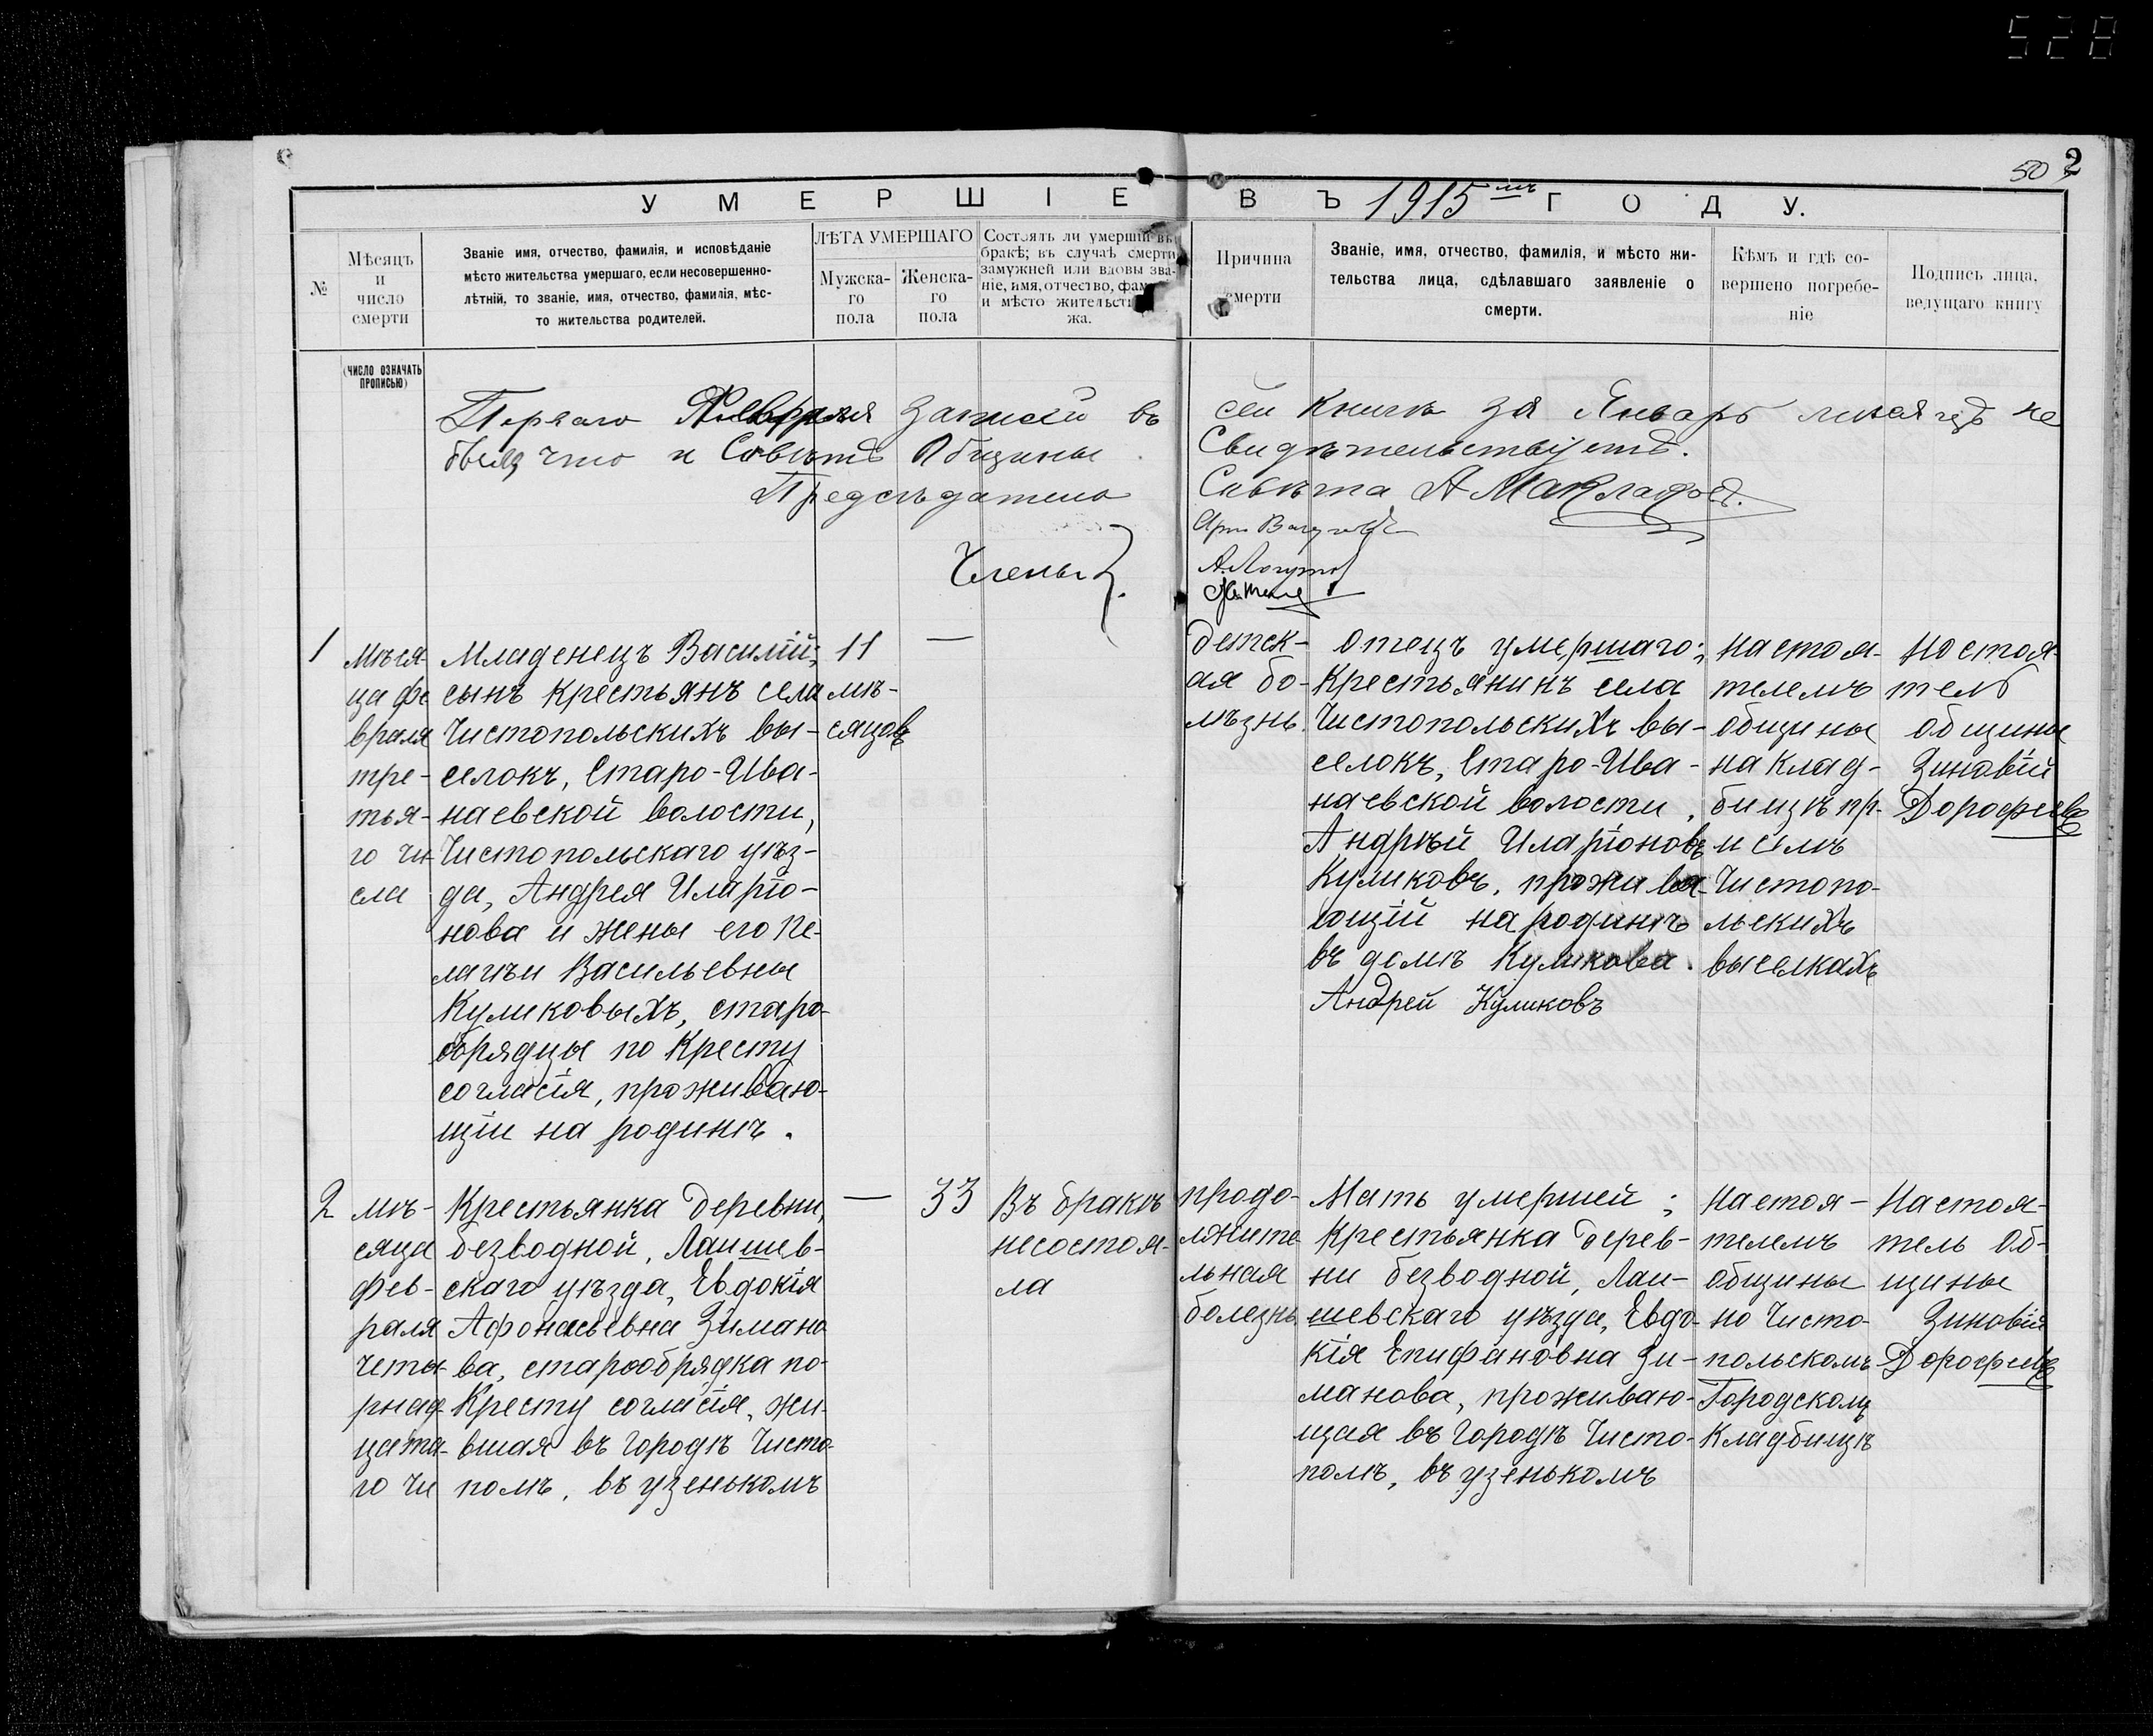 528
50 2
УМЕРШІЕ ВЪ 1915мъ ГОДУ.
№
Мѣсяцъ
и
число
смерти
Званіе имя, отчество, фамилія, и исповѣданіе
мѣсто жительства умершаго, если несовершенно-
лѣтній, то званіе, имя, отчество, фамилія, мѣс-
то жительства родителей.
ЛѢТА УМЕРШАГО
Мужска-
го
пола
Женска-
го
пола
Состоялъ ли умершій въ
бракѣ; въ случаѣ смерти
замужней или вдовы зва-
ніе, имя, отчество,
и мѣсто
жа.
Причина
смерти
Званіе, имя, отчество, фамилія, и мѣсто жи-
тельства лица, сдѣлавшаго заявленіе о
смерти.
Кѣмъ и гдѣ со-
вершено погребе-
ніе
Подпись лица,
ведущаго книгу
(ЧИСЛО ОЗНАЧАТЬ
ПРОПИСЬЮ)
Перваго Февраля записей въ сей книгѣ за Январь не
было что и Совѣтъ Общины Свидѣтельствуетъ.
Предсѣдатель Совѣта А Маклаковъ.
Члены
1
мѣся-
ца фе
враля
тре-
тья-
го чи-
сла
Младенецъ Василій;
сынъ крестьянъ села
Чистопольскихъ вы-
селокъ, Старо-Ива-
наевской волости,
Чистопольскаго уѣз-
да, Андрея Иларіо-
нова и жены его Пе-
лагѣи Васильевны
Куликовыхъ, старо-
обрядцы по Кресту
согласія, проживаю-
щіи на родинѣ.
11
мѣ-
сяцовъ
—
детск-
ая бо-
лѣзнь.
Отецъ умершаго;
Крестьянинъ села
Чистопольскихъ вы-
селокъ, Старо-Ива-
наевской волости,
Андрѣй Иларіоновъ
Куликовъ, прожива-
ющій на родинѣ
въ домѣ Куликова.
Андрей Куликовъ
настоя-
телемъ
общины
на клад-
бищѣ пр-
и селѣ
Чистопо-
льскихъ
выселкахъ
Настоя-
тель
общины
Зиновій
Дорофеевъ
2
мѣ-
сяца
фев-
раля
четы-
рнад-
цата-
го чи
Крестьянка деревни,
безводной, Лаишев-
скаго уѣзда, Евдокія
Афонасьевна Зимано
ва, старообрядка по-
Кресту согласія, жи-
вшая въ городѣ Чисто-
полѣ, въ узенькомъ
—
33
Въ бракѣ
несостоя-
ла
продо-
лжите
льная
болезнь
Мать умершей;
Крестьянка дерев-
ни безводной, Лаи-
шевскаго уѣзда, Евдо-
кія Епифановна Зи-
манова, проживаю-
щая въ городѣ Чисто-
полѣ, въ узенькомъ
Настоя-
телемъ
общины
но Чисто-
польскомъ
Городскомъ
Кладбищѣ
Настоя-
тель Об-
щины
Зиновій
Дорофеевъ